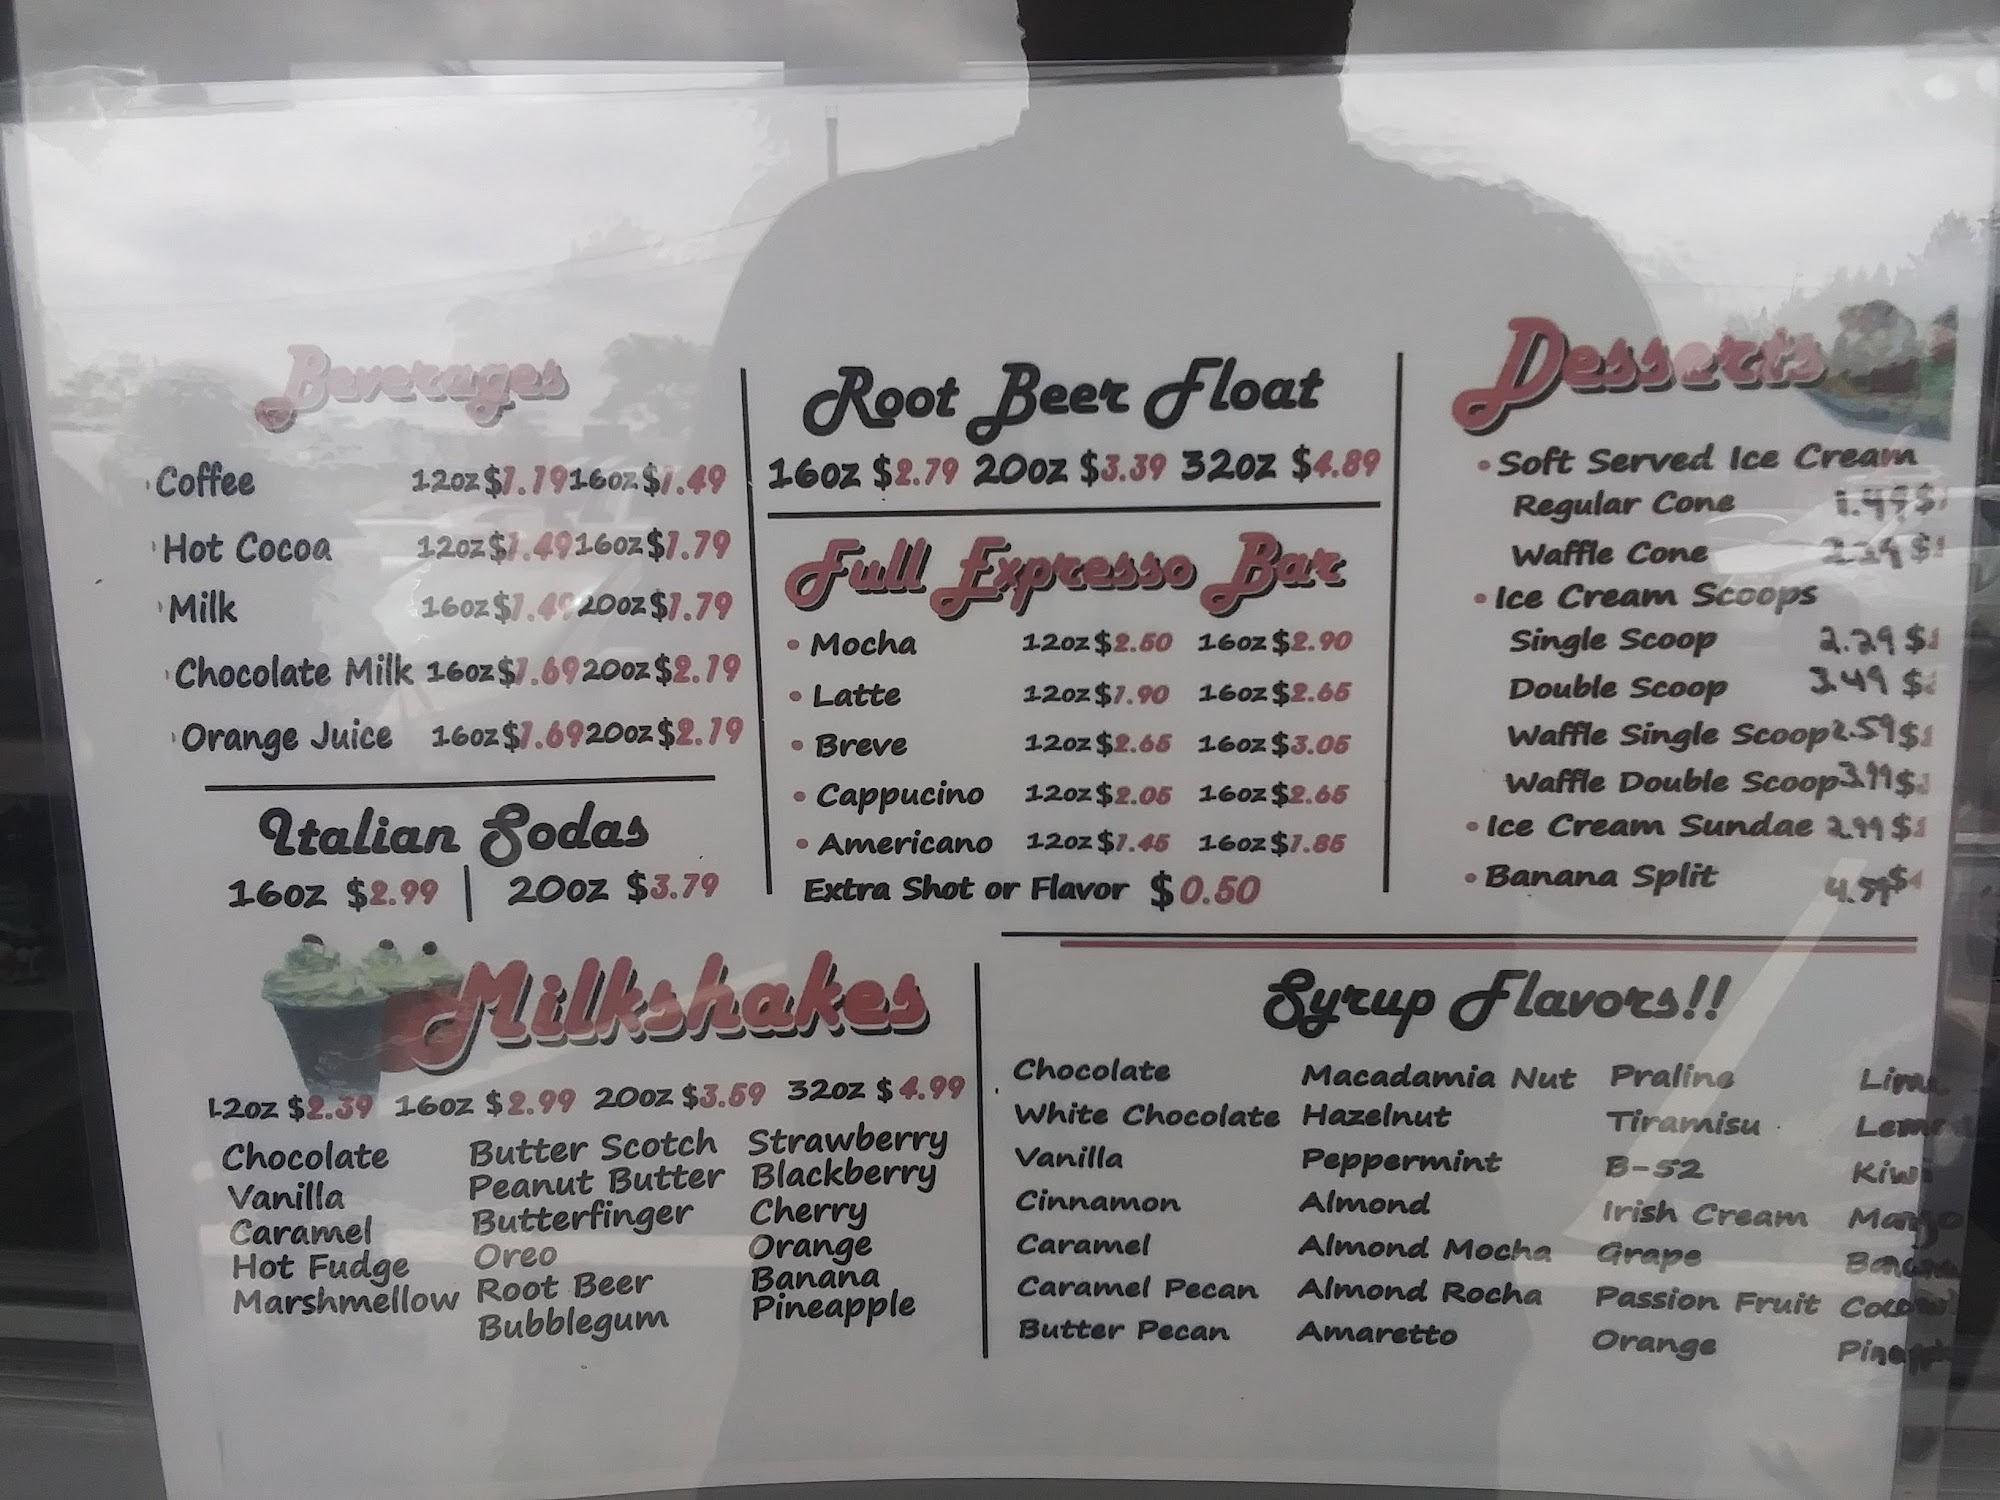 Beverages
Coffee 12oz $1.19 16oz $1.49
Hot Cocoa 12oz $1.49 16oz $1.79
Milk 16oz $1.49 20oz $1.79
Chocolate Milk 16oz $1.69 20oz $2.19
Orange Juice 16oz $1.69 20oz $2.19
Italian Sodas
16oz $2.99 | 20oz $3.79
Root Beer Float
16oz $2.79 20oz $3.39 32oz $4.89
Full Expresso Bar
Mocha 12oz $2.50 16oz $2.90
Latte 12oz $1.90 16oz $2.65
Breve 12oz $2.65 16oz $3.05
Cappucino 12oz $2.05 16oz $2.65
Americano 12oz $1.45 16oz $1.85
Extra Shot or Flavor $0.50
Desserts
Soft Served Ice Cream
Regular Cone 1.49 $
Waffle Cone $
Ice Cream Scoops
Single Scoop 2.29 $
Double Scoop 3.49 $
Waffle Single Scoop 2.59 $
Waffle Double Scoop 3.99 $
Ice Cream Sundae 2.99 $
Banana Split 4.59 $
Milkshakes
12oz $2.39 16oz $2.99 20oz $3.59 32oz $4.99
Chocolate Butter Scotch Strawberry
Vanilla Peanut Butter Blackberry
Caramel Butterfinger Cherry
Hot Fudge Oreo Orange
Marshmellow Root Beer Banana
Bubblegum Pineapple
Syrup Flavors!!
Chocolate Macadamia Nut Praline
White Chocolate Hazelnut Tiramisu
Vanilla Peppermint B-52 Kiwi
Cinnamon Almond Irish Cream Mango
Caramel Almond Mocha Grape
Caramel Pecan Almond Rocha Passion Fruit
Butter Pecan Amaretto Orange